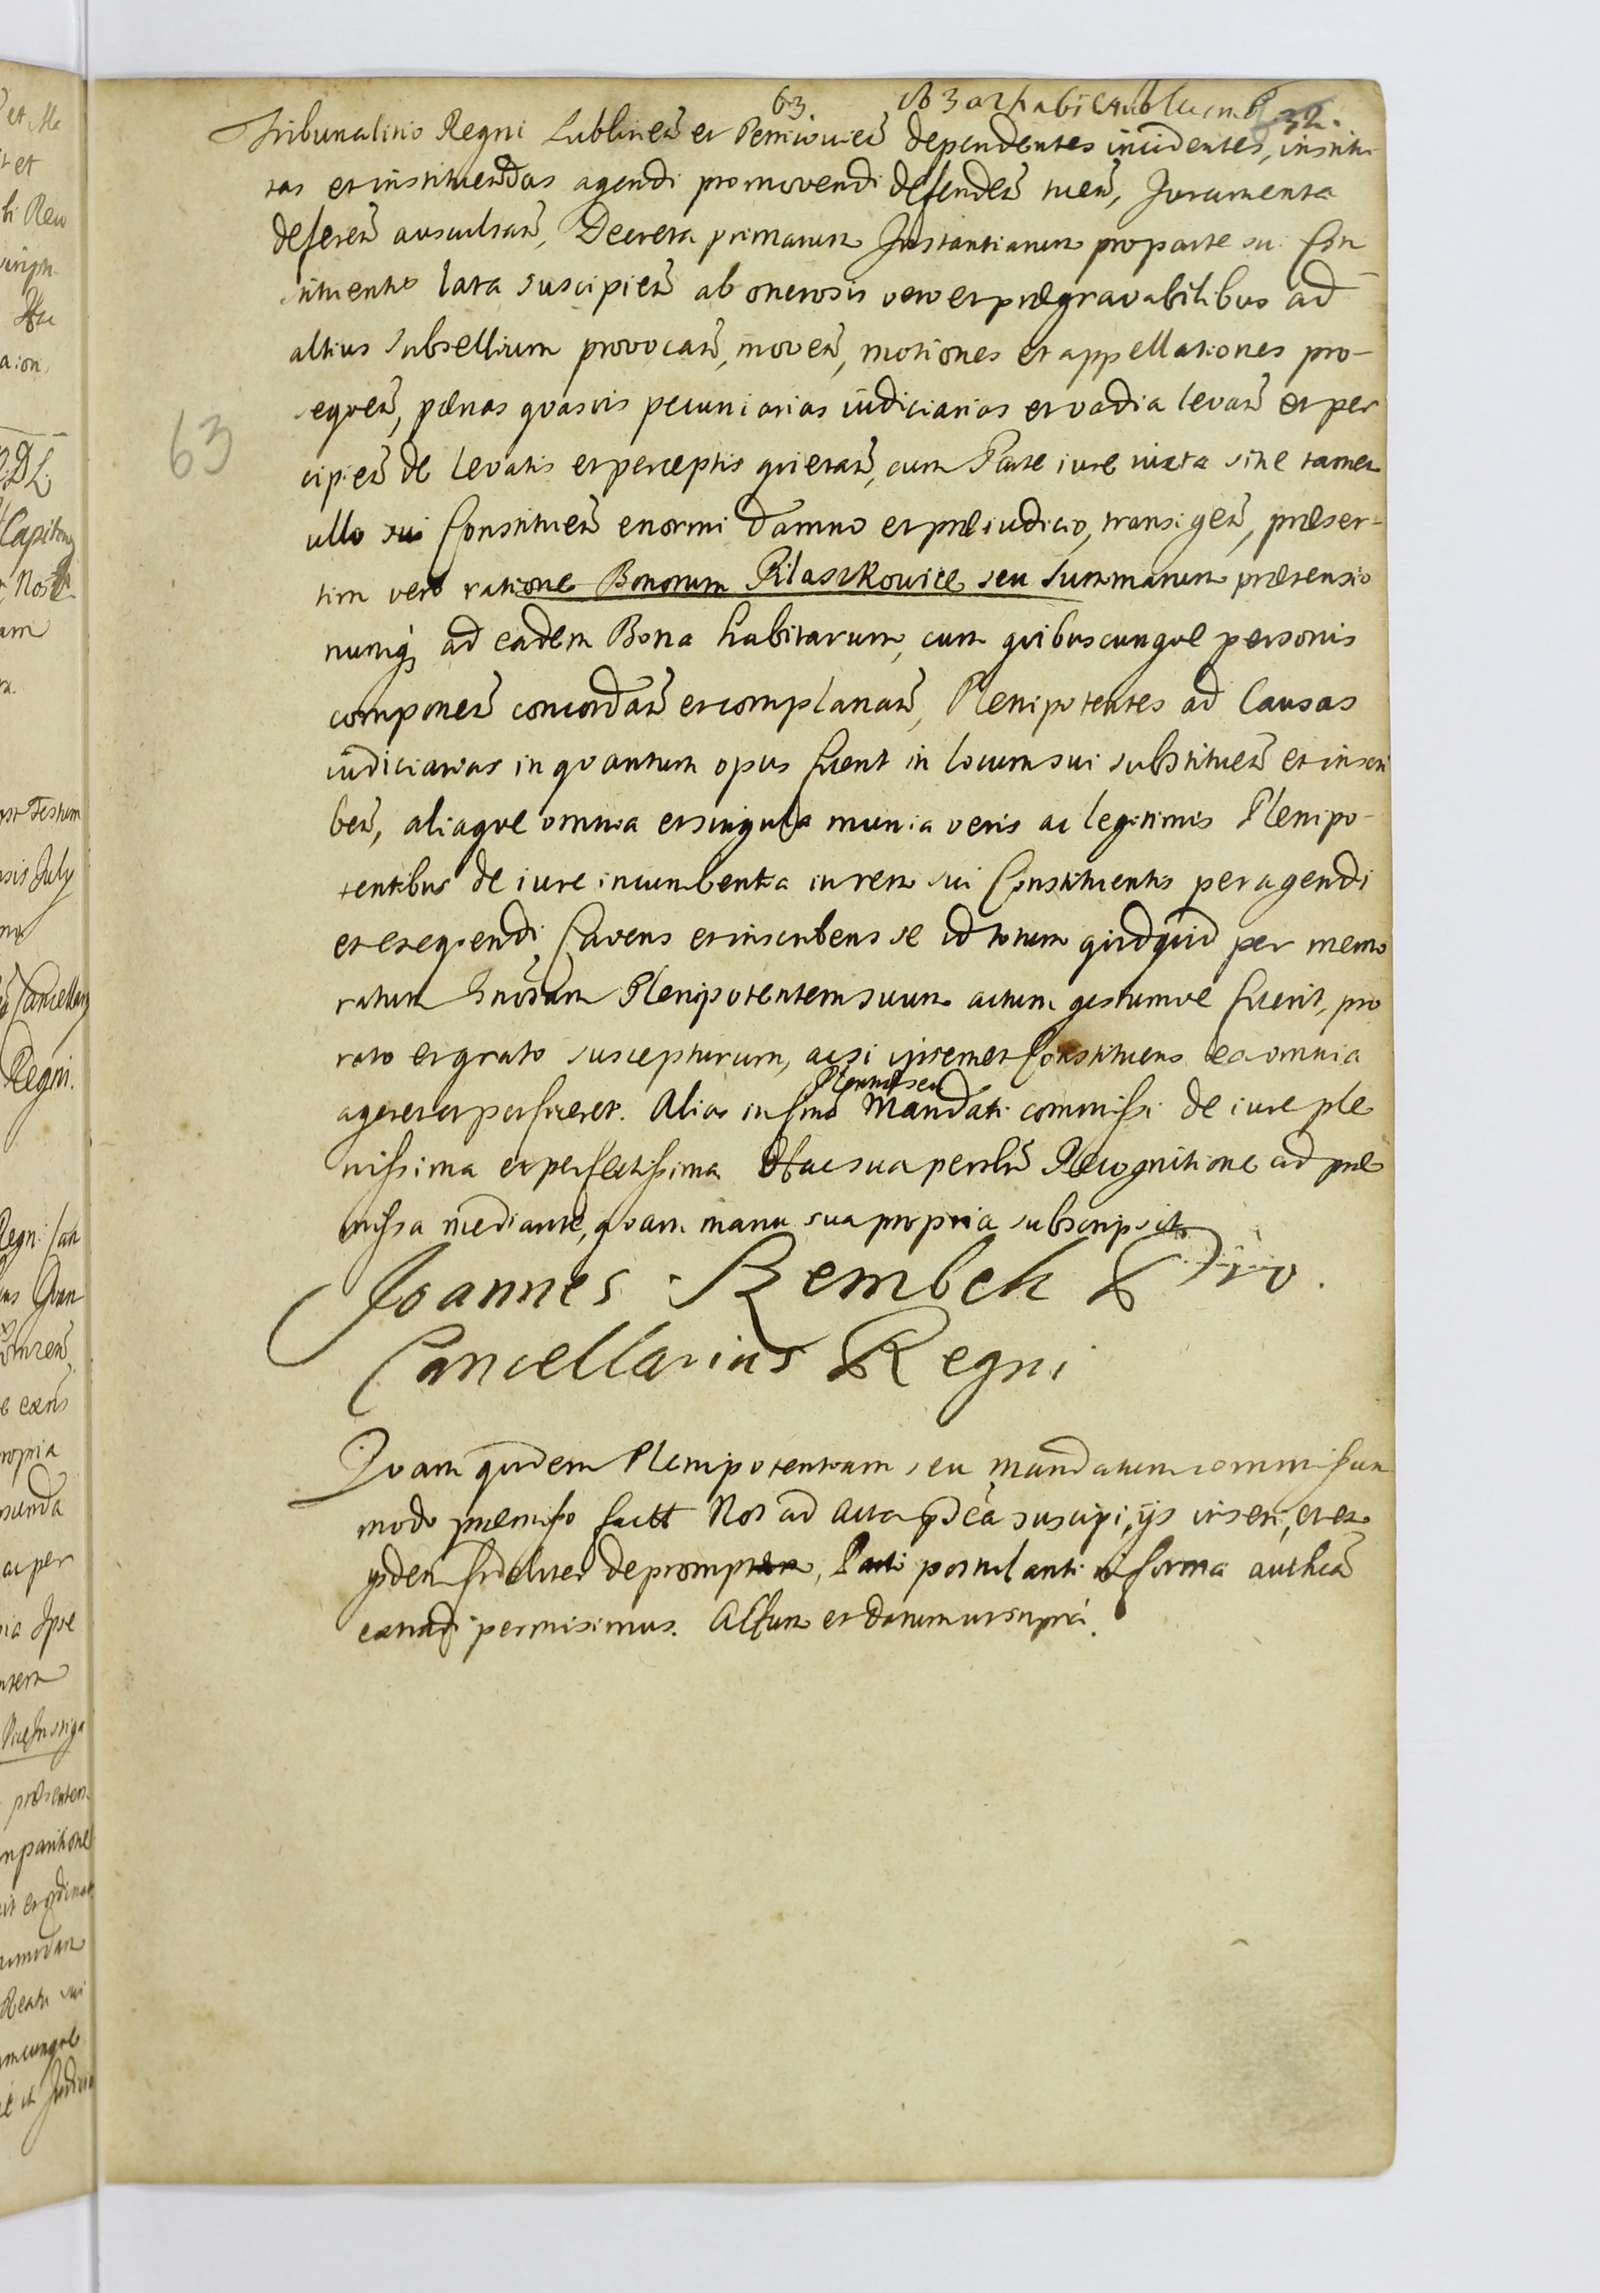 63
32.
Tribunalitio Regni Lublinen et Petricovien dependentes incidentes, institu
tas et instituendas agendi promovendi defenden tuen, Juramenta
deferen auscultan, Decreta primarum Instantiarum pro parte sui Con
stituentis lata suscipien ab onerosis vero et prægravabilibus ad
altius Subsellium provocan, moven, motiones et appellationes pro-
sequen, pænas quasvis pecuniarias iudiciarias et vadia levan et per
cipien de levatis et perceptis quietan, cum Parte iure victa sine tamen
63
ullo sui Constituen enormi damno et præiudicio, transigen, præser=
tim vero ratione Bonorum Pilaszkowice seu Summarum prætensio
numq ad eadem Bona habitarum, cum quibuscunque personis
componen concordan et complanan, Plenipotentes ad Causas
iudiciarias in quantum opus fuerit in locum sui substituen et inscri
ben, aliaque omnia et singula munia veris ac legitimis Plenipo-
tentibus de iure incumbentia in rem sui Constituentis peragendi
et exequendi, Cavens et inscribens se id totum quidquid per memo
ratum Gnosum Plenipotentem suum actum gestumve fuerit, pro
rato et grato suscepturum, ac si ipsemet Constituens ea omnia
Plenntiæ seu
ageret et perficeret. Alias in forma Mandati commissi de iure ple
nissima et perfectissima. Hac sua personli Recognitione ad præ
missa mediante, quam manu sua propria subscripsit
Joannes Rembek Pro
Cancellarius Regni
Quam quidem Plenipotentiam seu mandatum commissum
modo præmisso factt Nos ad Acta pnsea suscipi, ijs inseri, et ex
ijsdem fideliter depromptam, Parti postulanti in forma authen
extradi permisimus. Actum et datum ut supra.